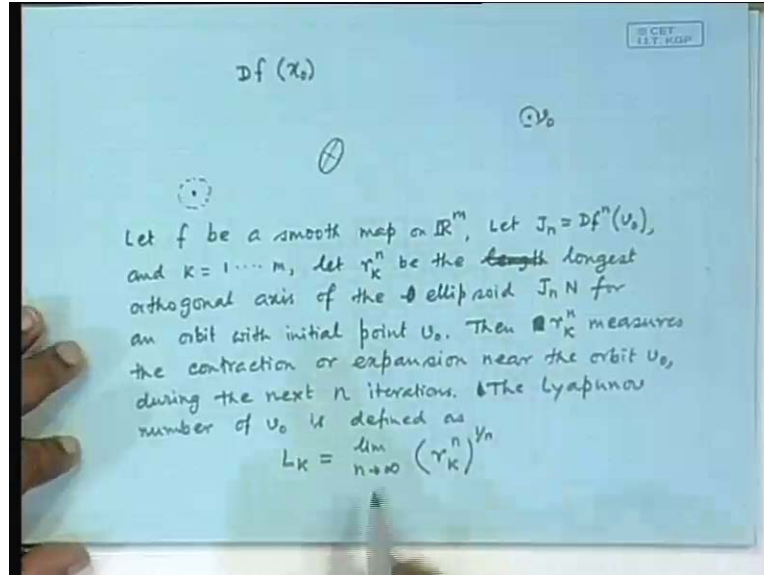 © CET
I.I.T. KGP
Df (x₀)
v₀
Let f be a smooth map on ℝᵐ, Let Jₙ = Dfⁿ(v₀),
and K = 1 ···· m, let rₖⁿ be the longest
orthogonal axis of the ellipsoid Jₙ N for
an orbit with initial point v₀. Then rₖⁿ measures
the contraction or expansion near the orbit v₀,
during the next n iterations. The Lyapunov
number of v₀ is defined as
Lₖ = lim n→∞ (rₖⁿ)^1/n